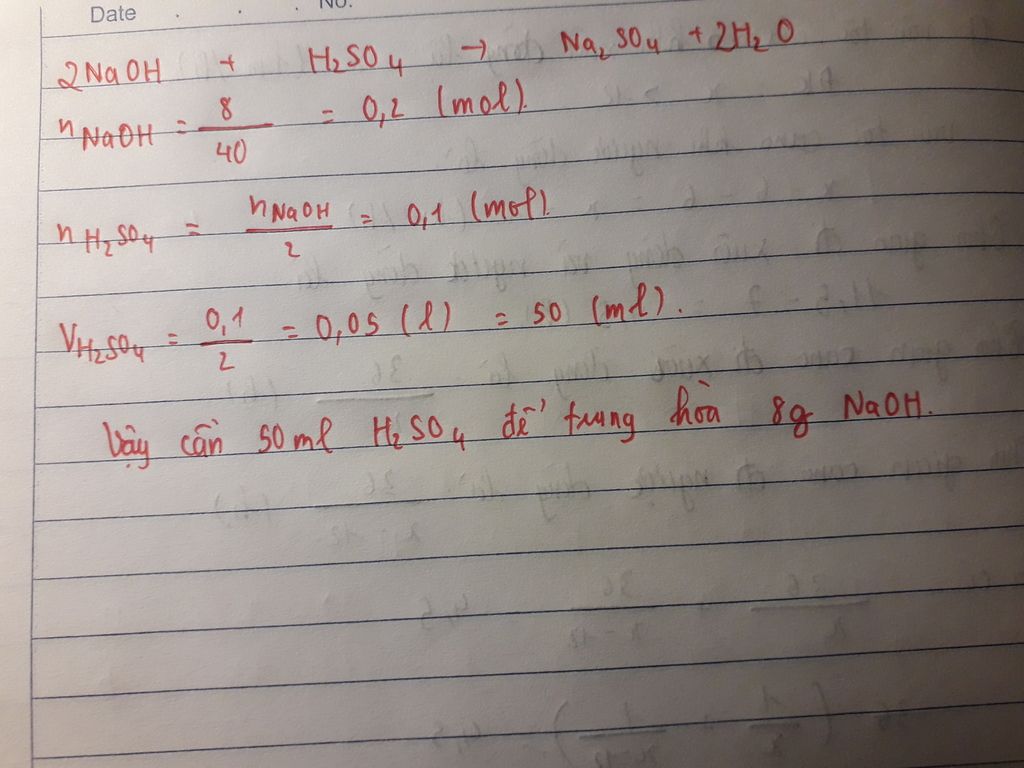 Date . . . No.
2NaOH + H₂SO₄ → Na₂SO₄ + 2H₂O
nNaOH = 8/40 = 0,2 (mol).
nH₂SO₄ = nNaOH/2 = 0,1 (mol).
VH₂SO₄ = 0,1/2 = 0,05 (l) = 50 (ml).
Vậy cần 50ml H₂SO₄ để trung hòa 8g NaOH.